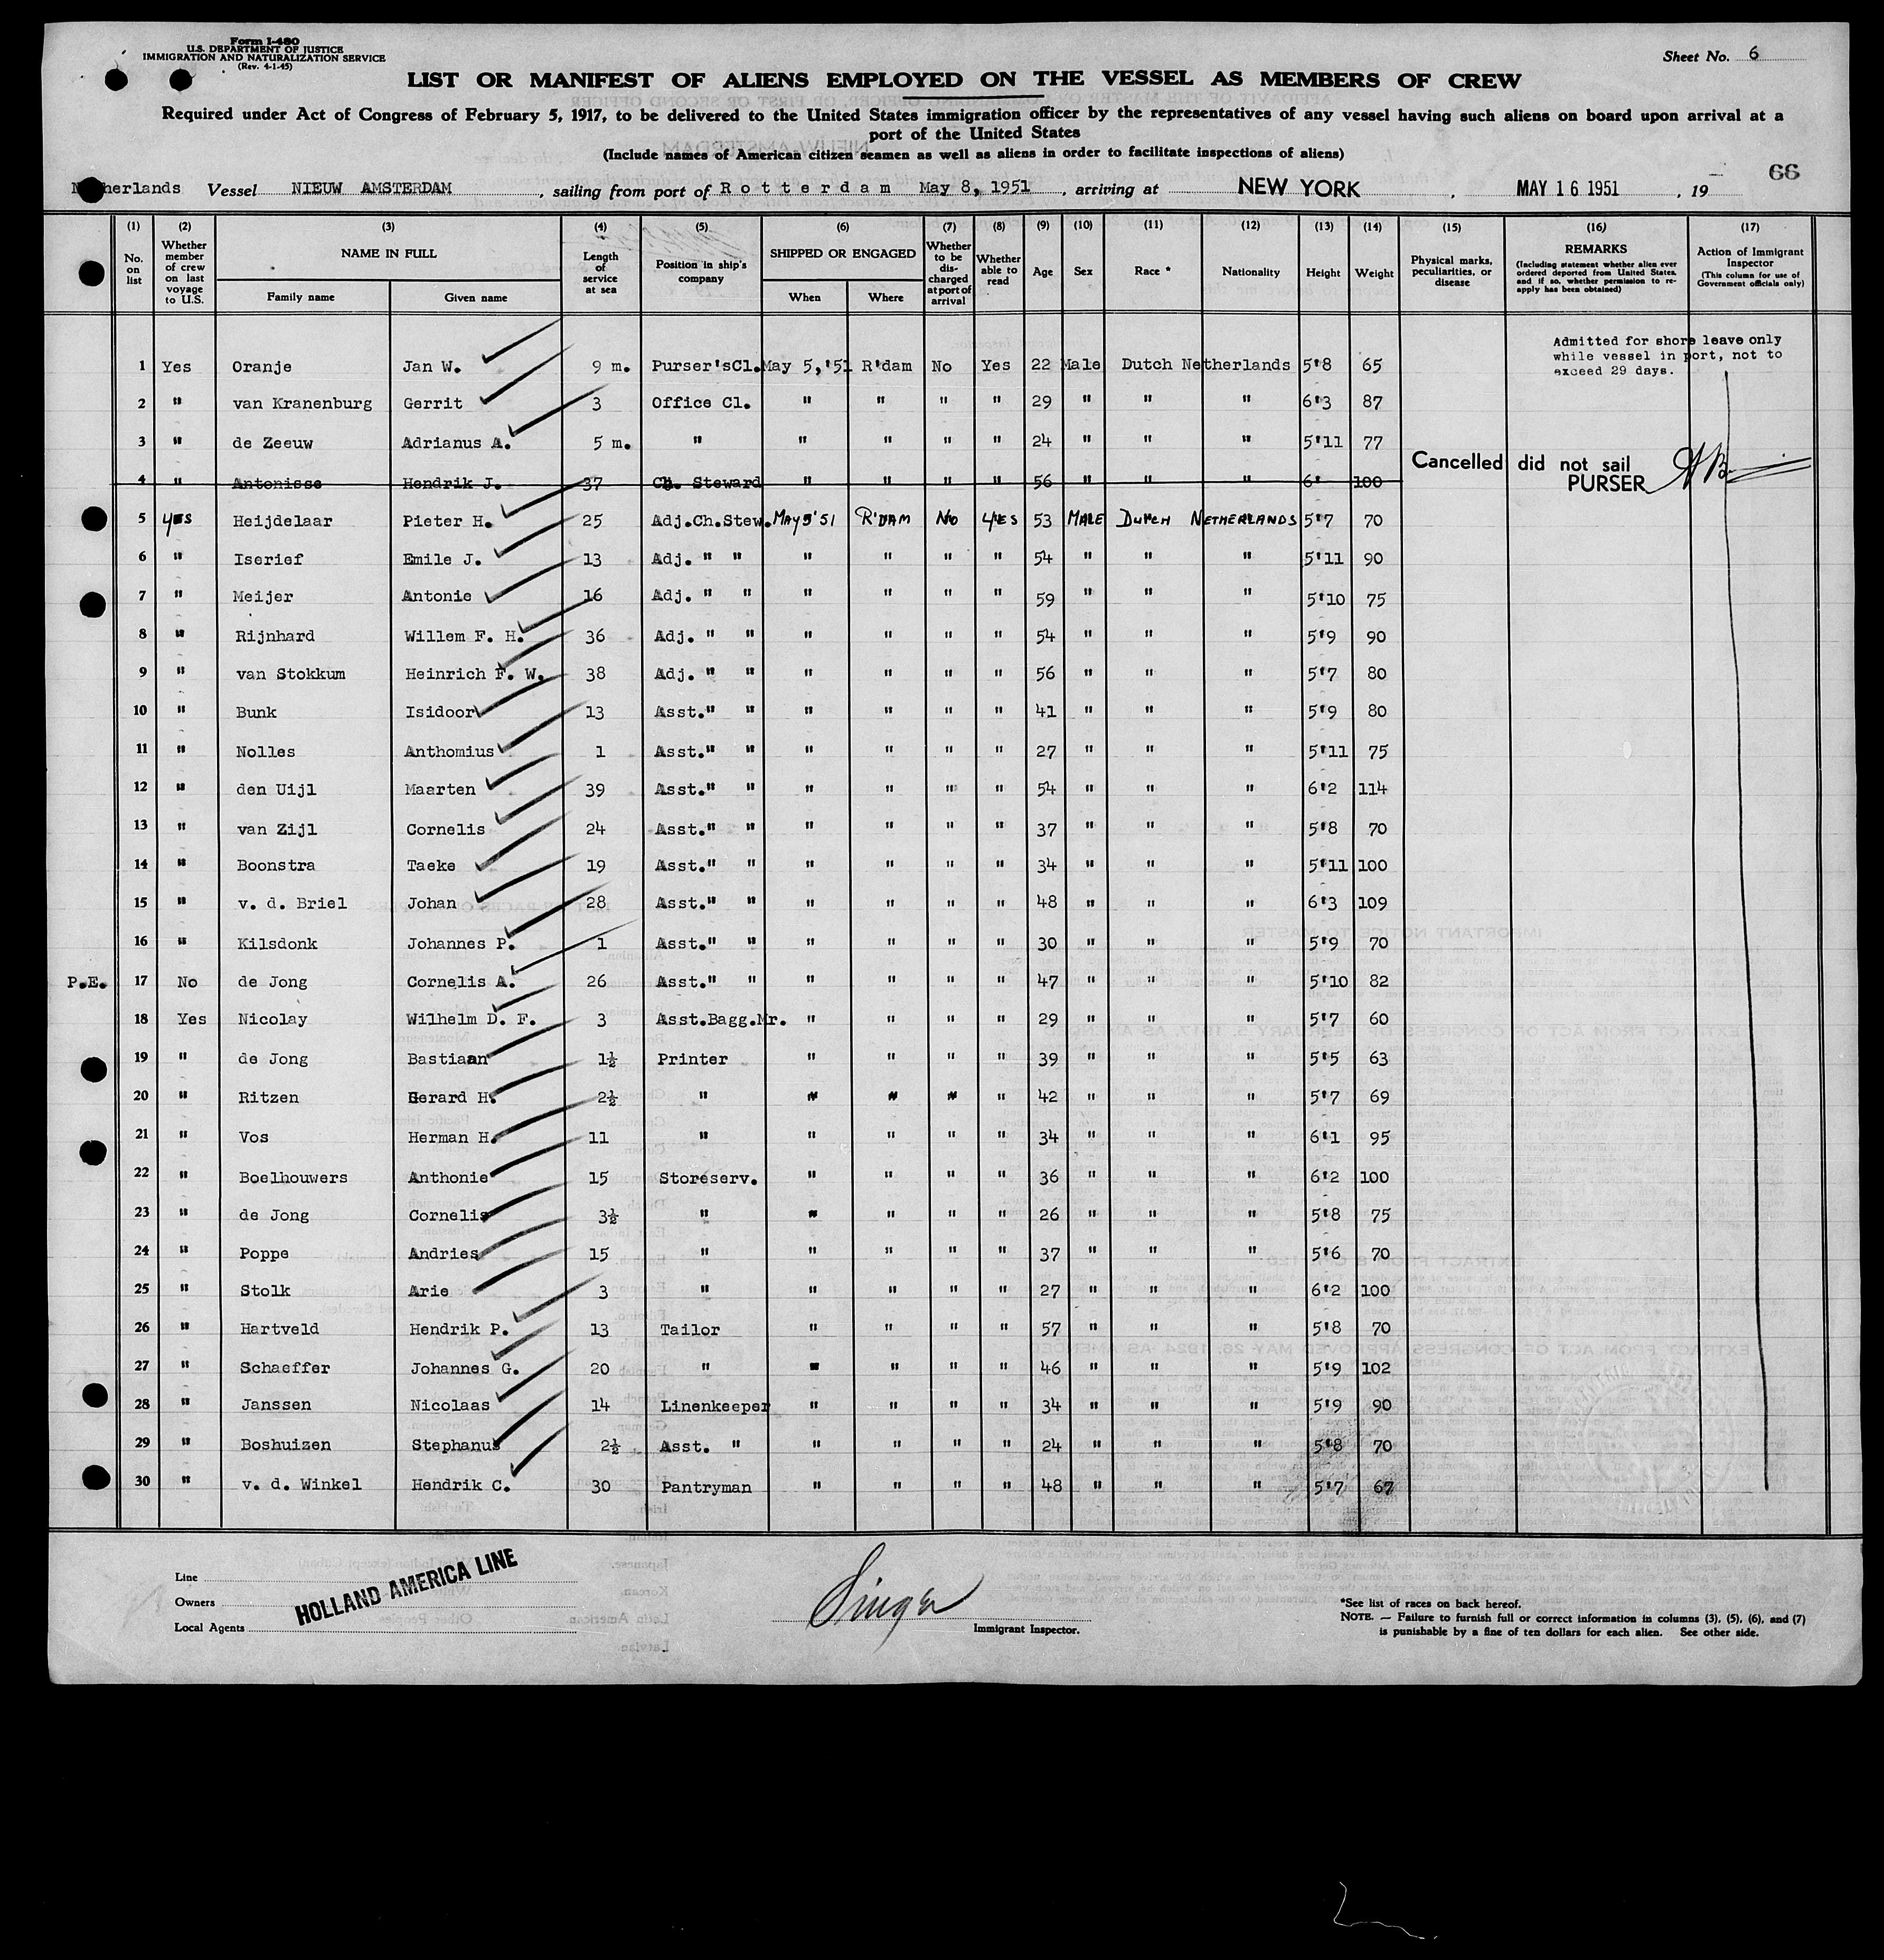 Form I-480
U.S. DEPARTMENT OF JUSTICE
IMMIGRATION AND NATURALIZATION SERVICE
(Rev. 4-1-45)
Sheet No. 6
LIST OR MANIFEST OF ALIENS EMPLOYED ON THE VESSEL AS MEMBERS OF CREW
Required under Act of Congress of February 5, 1917, to be delivered to the United States immigration officer by the representatives of any vessel having such aliens on board upon arrival at a
port of the United States
(Include names of American citizen seamen as well as aliens in order to facilitate inspections of aliens)
66
Netherlands Vessel NIEUW AMSTERDAM , sailing from port of Rotterdam May 8, 1951 , arriving at NEW YORK , MAY 16 1951 , 19
(1) (2) (3) (4) (5) (6) (7) (8) (9) (10) (11) (12) (13) (14) (15) (16) (17)
No. on list
Whether member of crew on last voyage to U.S.
NAME IN FULL
Family name
Given name
Length of service at sea
Position in ship's company
SHIPPED OR ENGAGED
When
Where
Whether to be discharged at port of arrival
Whether able to read
Age
Sex
Race *
Nationality
Height
Weight
Physical marks, peculiarities, or disease
REMARKS
(Including statement whether alien ever ordered deported from United States, and if so, whether permission to reapply has been obtained)
Action of Immigrant Inspector
(This column for use of Government officials only)
Admitted for shore leave only
while vessel in port, not to
exceed 29 days.
1 Yes Oranje Jan W. 9 m. Purser'sCl. May 5,'51 R'dam No Yes 22 Male Dutch Netherlands 5'8 65
2 " van Kranenburg Gerrit 3 Office Cl. " " " " 29 " " " 6'3 87
3 " de Zeeuw Adrianus A. 5 m. " " " " " 24 " " " 5'11 77
4 " Antonisse Hendrik J. 37 Ch. Steward " " " " 56 " " " 6' 100 Cancelled did not sail
PURSER
5 YES Heijdelaar Pieter H. 25 Adj.Ch.Stew. MAY 5'51 R'DAM NO YES 53 MALE DUTCH NETHERLANDS 5'7 70
6 " Iserief Emile J. 13 Adj. " " " " " " 54 " " " 5'11 90
7 " Meijer Antonie 16 Adj. " " " " " " 59 " " " 5'10 75
8 " Rijnhard Willem F. H. 36 Adj. " " " " " " 54 " " " 5'9 90
9 " van Stokkum Heinrich F. W. 38 Adj. " " " " " " 56 " " " 5'7 80
10 " Bunk Isidoor 13 Asst." " " " " " 41 " " " 5'9 80
11 " Nolles Anthomius 1 Asst." " " " " " 27 " " " 5'11 75
12 " den Uijl Maarten 39 Asst." " " " " " 54 " " " 6'2 114
13 " van Zijl Cornelis 24 Asst." " " " " " 37 " " " 5'8 70
14 " Boonstra Taeke 19 Asst." " " " " " 34 " " " 5'11 100
15 " v. d. Briel Johan 28 Asst." " " " " " 48 " " " 6'3 109
16 " Kilsdonk Johannes P. 1 Asst." " " " " " 30 " " " 5'9 70
P.E. 17 No de Jong Cornelis A. 26 Asst." " " " " " 47 " " " 5'10 82
18 Yes Nicolay Wilhelm D. F. 3 Asst.Bagg.Mr. " " " " 29 " " " 5'7 60
19 " de Jong Bastiaan 1½ Printer " " " " 39 " " " 5'5 63
20 " Ritzen Gerard H. 2½ " " " " " 42 " " " 5'7 69
21 " Vos Herman H. 11 " " " " " 34 " " " 6'1 95
22 " Boelhouwers Anthonie 15 Storeserv. " " " " 36 " " " 6'2 100
23 " de Jong Cornelis 3½ " " " " " 26 " " " 5'8 75
24 " Poppe Andries 15 " " " " " 37 " " " 5'6 70
25 " Stolk Arie 3 " " " " " 27 " " " 6'2 100
26 " Hartveld Hendrik P. 13 Tailor " " " " 57 " " " 5'8 70
27 " Schaeffer Johannes G. 20 " " " " " 46 " " " 5'9 102
28 " Janssen Nicolaas 14 Linenkeeper " " " " 34 " " " 5'9 90
29 " Boshuizen Stephanus 2½ Asst. " " " " " 24 " " " 5'8 70
30 " v. d. Winkel Hendrik C. 30 Pantryman " " " " 48 " " " 5'7 67
Line
Owners
Local Agents
HOLLAND AMERICA LINE
Singer
Immigrant Inspector.
*See list of races on back hereof.
NOTE. — Failure to furnish full or correct information in columns (3), (5), (6), and (7)
is punishable by a fine of ten dollars for each alien. See other side.